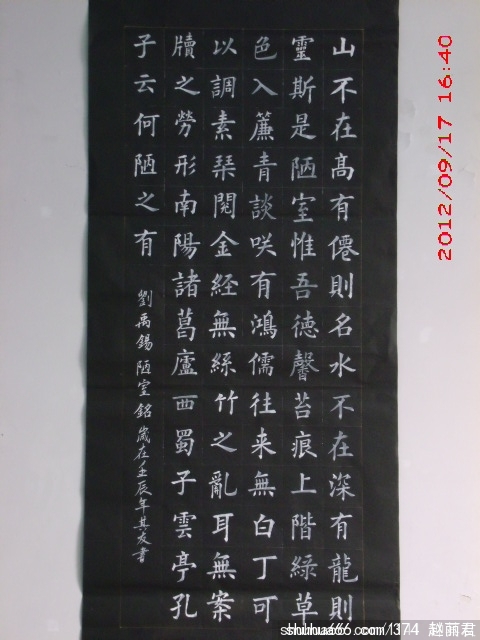 山不在高有僊則名水不在深有龍則
靈斯是陋室惟吾德馨苔痕上階綠草
色入簾青談咲有鴻儒往来無白丁可
以調素琹閱金經無絲竹之亂耳無案
牘之勞形南陽諸葛廬西蜀子雲亭孔
子云何陋之有
劉禹錫陋室銘歲在壬辰年其友書
2012/09/17 16:40
shuhua66.com/1374 赵丽君